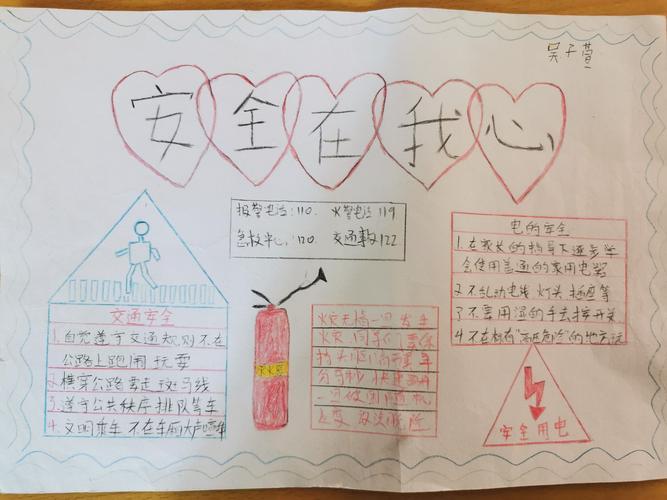 吴子萱
安全在我心
报警电话:110. 火警电话119
急救中心:120 交通事故122
交通安全
1.自觉遵守交通规则不在
公路上跑闹玩耍
2.横穿公路要走斑马线
3.遵守公共秩序排队等车
4.文明乘车 不在车厢大声喧哗
灭火
火灾 一旦发生
火灾
电的安全
1.在家长的指导下逐步学
会使用普通的家用电器
2.不乱动电线 灯头 插座等
3.不要用湿的手去按开关
4.不在标有"高压危险"的地方玩
安全用电